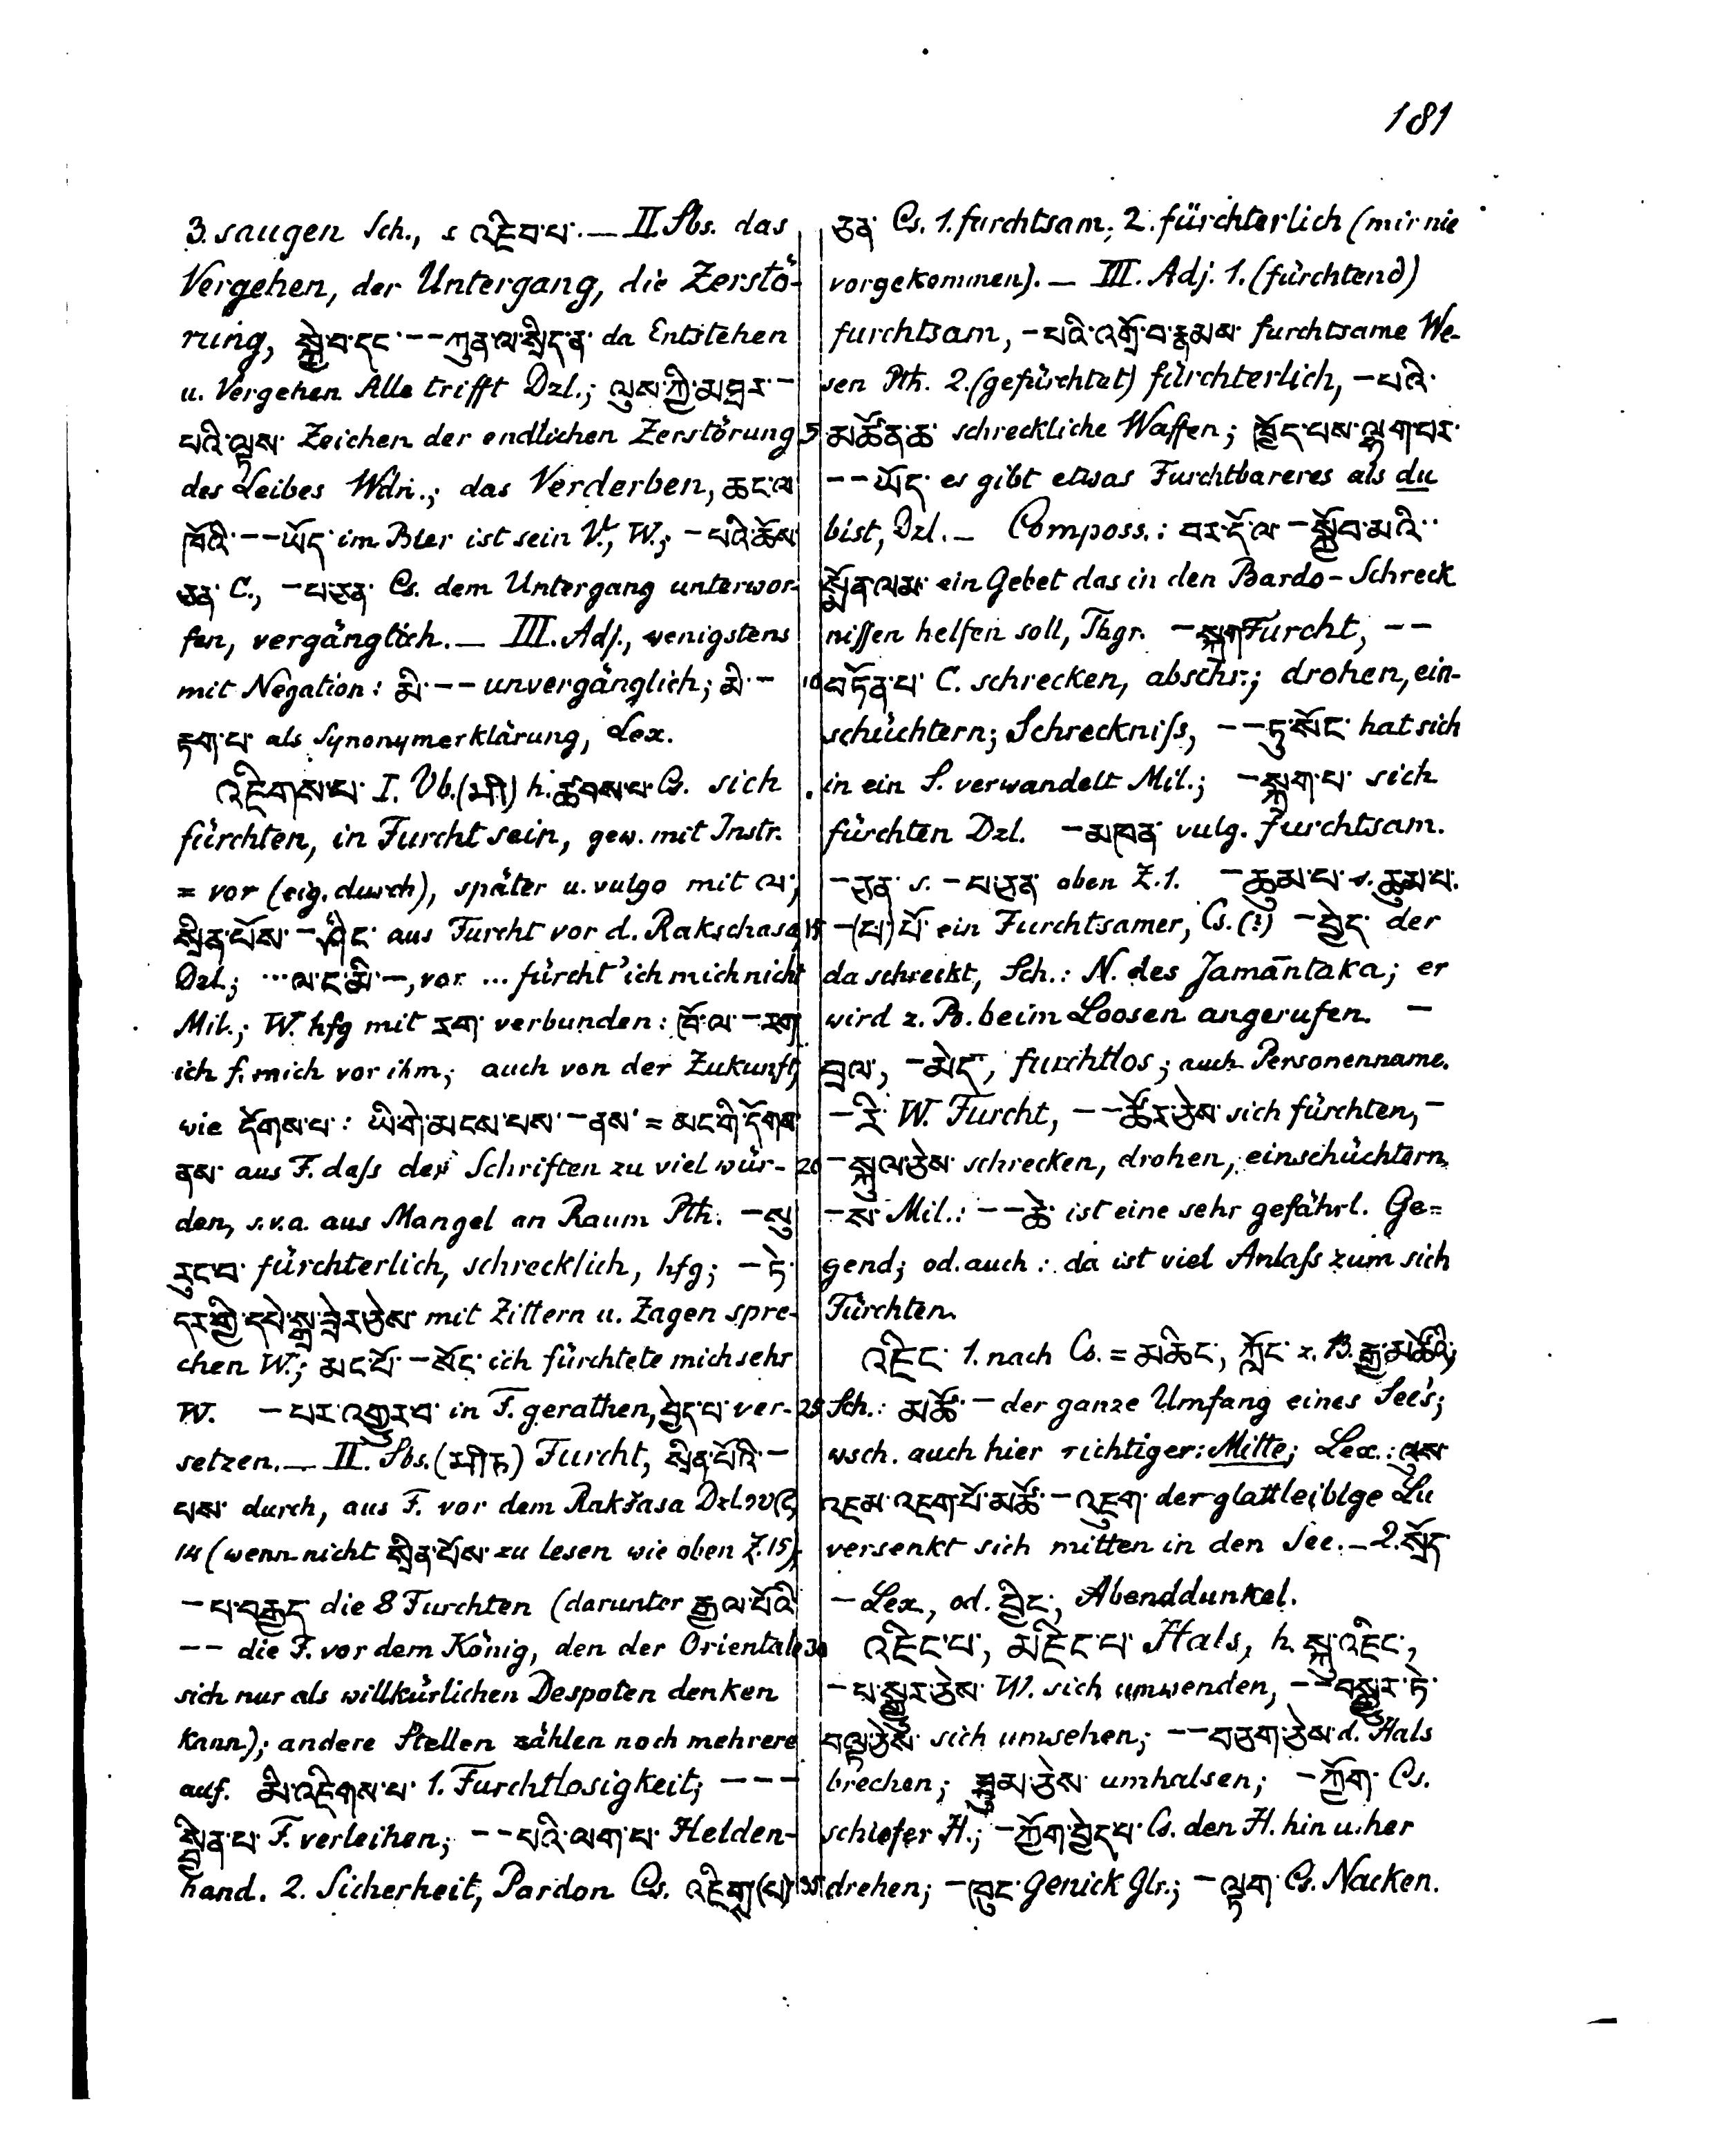 181
3. saugen Sch., s འཇིབ་པ་. — II. Sbs. das
Vergehen, der Untergang, die Zerstö-
rung, སྐྱེ་བ་དང་ -- ཀུན་ལ་སྲིད་ན་ da Entstehen
u. Vergehen Alle trifft Dzl.; ལུས་ཀྱི་མཐར་ -
པའི་ལྟས་ Zeichen der endlichen Zerstörung
des Leibes Wdn.; das Verderben, ཆང་ལ་
ཁོའི་ -- ཡོད་ im Bier ist sein V., W.; - པའི་ཆོས་
ཅན་ C., - པ་ཅན་ Cs. dem Untergang unterwor-
fen, vergänglich. — III. Adj., wenigstens
mit Negation: མི་ -- unvergänglich; མི་ -
རྟག་པ་ als Synonymerklärung, Lex.
འཇིགས་པ་ I. Vb. (भी) h. ཚབས་པ་ Cs. sich
fürchten, in Furcht sein, gew. mit Instr.
= vor (eig. durch), später u. vulgo mit ལ་;
སྲིན་པོས་ - ཤིང་ aus Furcht vor d. Rakschasa
Dzl.; ... ལ་ང་མི་ -, vor ... fürcht' ich mich nicht
Mil.; W. hfg mit རག་ verbunden: ཁོ་ལ་ - རག་
ich f. mich vor ihm; auch von der Zukunft,
wie དོགས་པ་: ཡི་གེ་མངས་པས་ - ནས་ = མང་གི་དོགས་
ནས་ aus F. daſs der Schriften zu viel wür-
den, s.v.a. aus Mangel an Raum Pth. - སུ་
རུང་བ་ fürchterlich, schrecklich, hfg; - ཏེ་
དར་གྱི་དཔེ་སྒྲ་ཟེར་ཅེས་ mit Zittern u. Zagen spre-
chen W.; མང་པོ་ - སོང་ ich fürchtete mich sehr
W. - པར་འགྱུར་བ་ in F. gerathen, བྱེད་པ་ ver-
setzen. — II. Sbs. (भीत) Furcht, སྲིན་པོའི་ -
པས་ durch, aus F. vor dem Rakžasa Dzl.
14 (wenn nicht སྲིན་པོས་ zu lesen wie oben Z. 15);
- པ་བརྒྱད་ die 8 Furchten (darunter རྒྱལ་པོའི་
-- die F. vor dem König, den der Orientale
sich nur als willkürlichen Despoten denken
kann); andere Stellen zählen noch mehrere
auf. མི་འཇིགས་པ་ 1. Furchtlosigkeit; ---
སྦྱིན་པ་ F. verleihen; -- པའི་ལག་པ་ Helden-
hand. 2. Sicherheit, Pardon Cs. འཇིགས་(པ)
ཅན་ Cs. 1. furchtsam; 2. fürchterlich (mir nie
vorgekommen). — III. Adj. 1. (fürchtend)
furchtsam, - པའི་འགྲོ་བ་རྣམས་ furchtsame We-
sen Pth. 2. (gefürchtet) fürchterlich, - པའི་
5 མཚོན་ཆ་ schreckliche Waffen; ཁྱོད་པས་ལྷག་པར་
-- ཡོད་ es gibt etwas Furchtbareres als du
bist, Dzl. — Composs.: བར་དོ་ལ་ - སྐྱོབ་མའི་
སྨོན་ལམ་ ein Gebet das in den Bardo-Schreck
nissen helfen soll, Thgr. - སྐྲག་ Furcht, --
10 བཏོན་པ་ C. schrecken, abschr.; drohen, ein-
schüchtern; Schreckniſs, -- ཏུ་སོང་ hat sich
in ein S. verwandelt Mil.; - སྐྲག་པ་ sich
fürchten Dzl. - མཁན་ vulg. furchtsam.
- ཅན་ s. - པ་ཅན་ oben Z. 1. - ཆུམ་པ་ s. ཆུམ་པ་.
15 - (པ་)པོ་ ein Furchtsamer, Cs. (?) - བྱེད་ der
da schreckt, Sch.: N. des Jamāntaka; er
wird z. B. beim Loosen angerufen. -
བྲལ་, - མེད་, furchtlos; auch Personenname.
- རི་ W. Furcht, -- ཚོར་ཅེས་ sich fürchten, -
20 - སྐུལ་ཅེས་ schrecken, drohen, einschüchtern,
- ས་ Mil.: -- ཆེ་ ist eine sehr gefährl. Ge=
gend; od. auch: da ist viel Anlaſs zum sich
Fürchten.
འཇིང་ 1. nach Cs. = མཆིང་, ཀློང་ z. B. རྒྱ་མཚོའི་;
25 Sch.: མཚོ་ - der ganze Umfang eines See's;
wsch. auch hier richtiger: Mitte; Lex.: ལུས་
འཇམ་འཇག་པོ་མཚོ་ - འཇུག་ der glattleibige Lu
versenkt sich mitten in den See. — 2. སྲོད་
- Lex, od. བྱིང་, Abenddunkel.
30 འཇིང་པ་, མཇིང་པ་ Hals, h. སྐུ་འཇིང་,
- པ་སྒྱུར་ཅེས་ W. sich umwenden, -- བསྒྱུར་ཏེ་
བལྟ་ཅེས་ sich umsehen; -- བཅག་ཅེས་ d. Hals
brechen; འཐུམ་ཅེས་ umhalsen; - ཀྱོག་ Cs.
schiefer H.; - ཀྱོག་བྱེད་པ་ Cs. den H. hin u. her
35 drehen; - ཁུང་ Genick Glr.; - ལྟག་ Cs. Nacken.